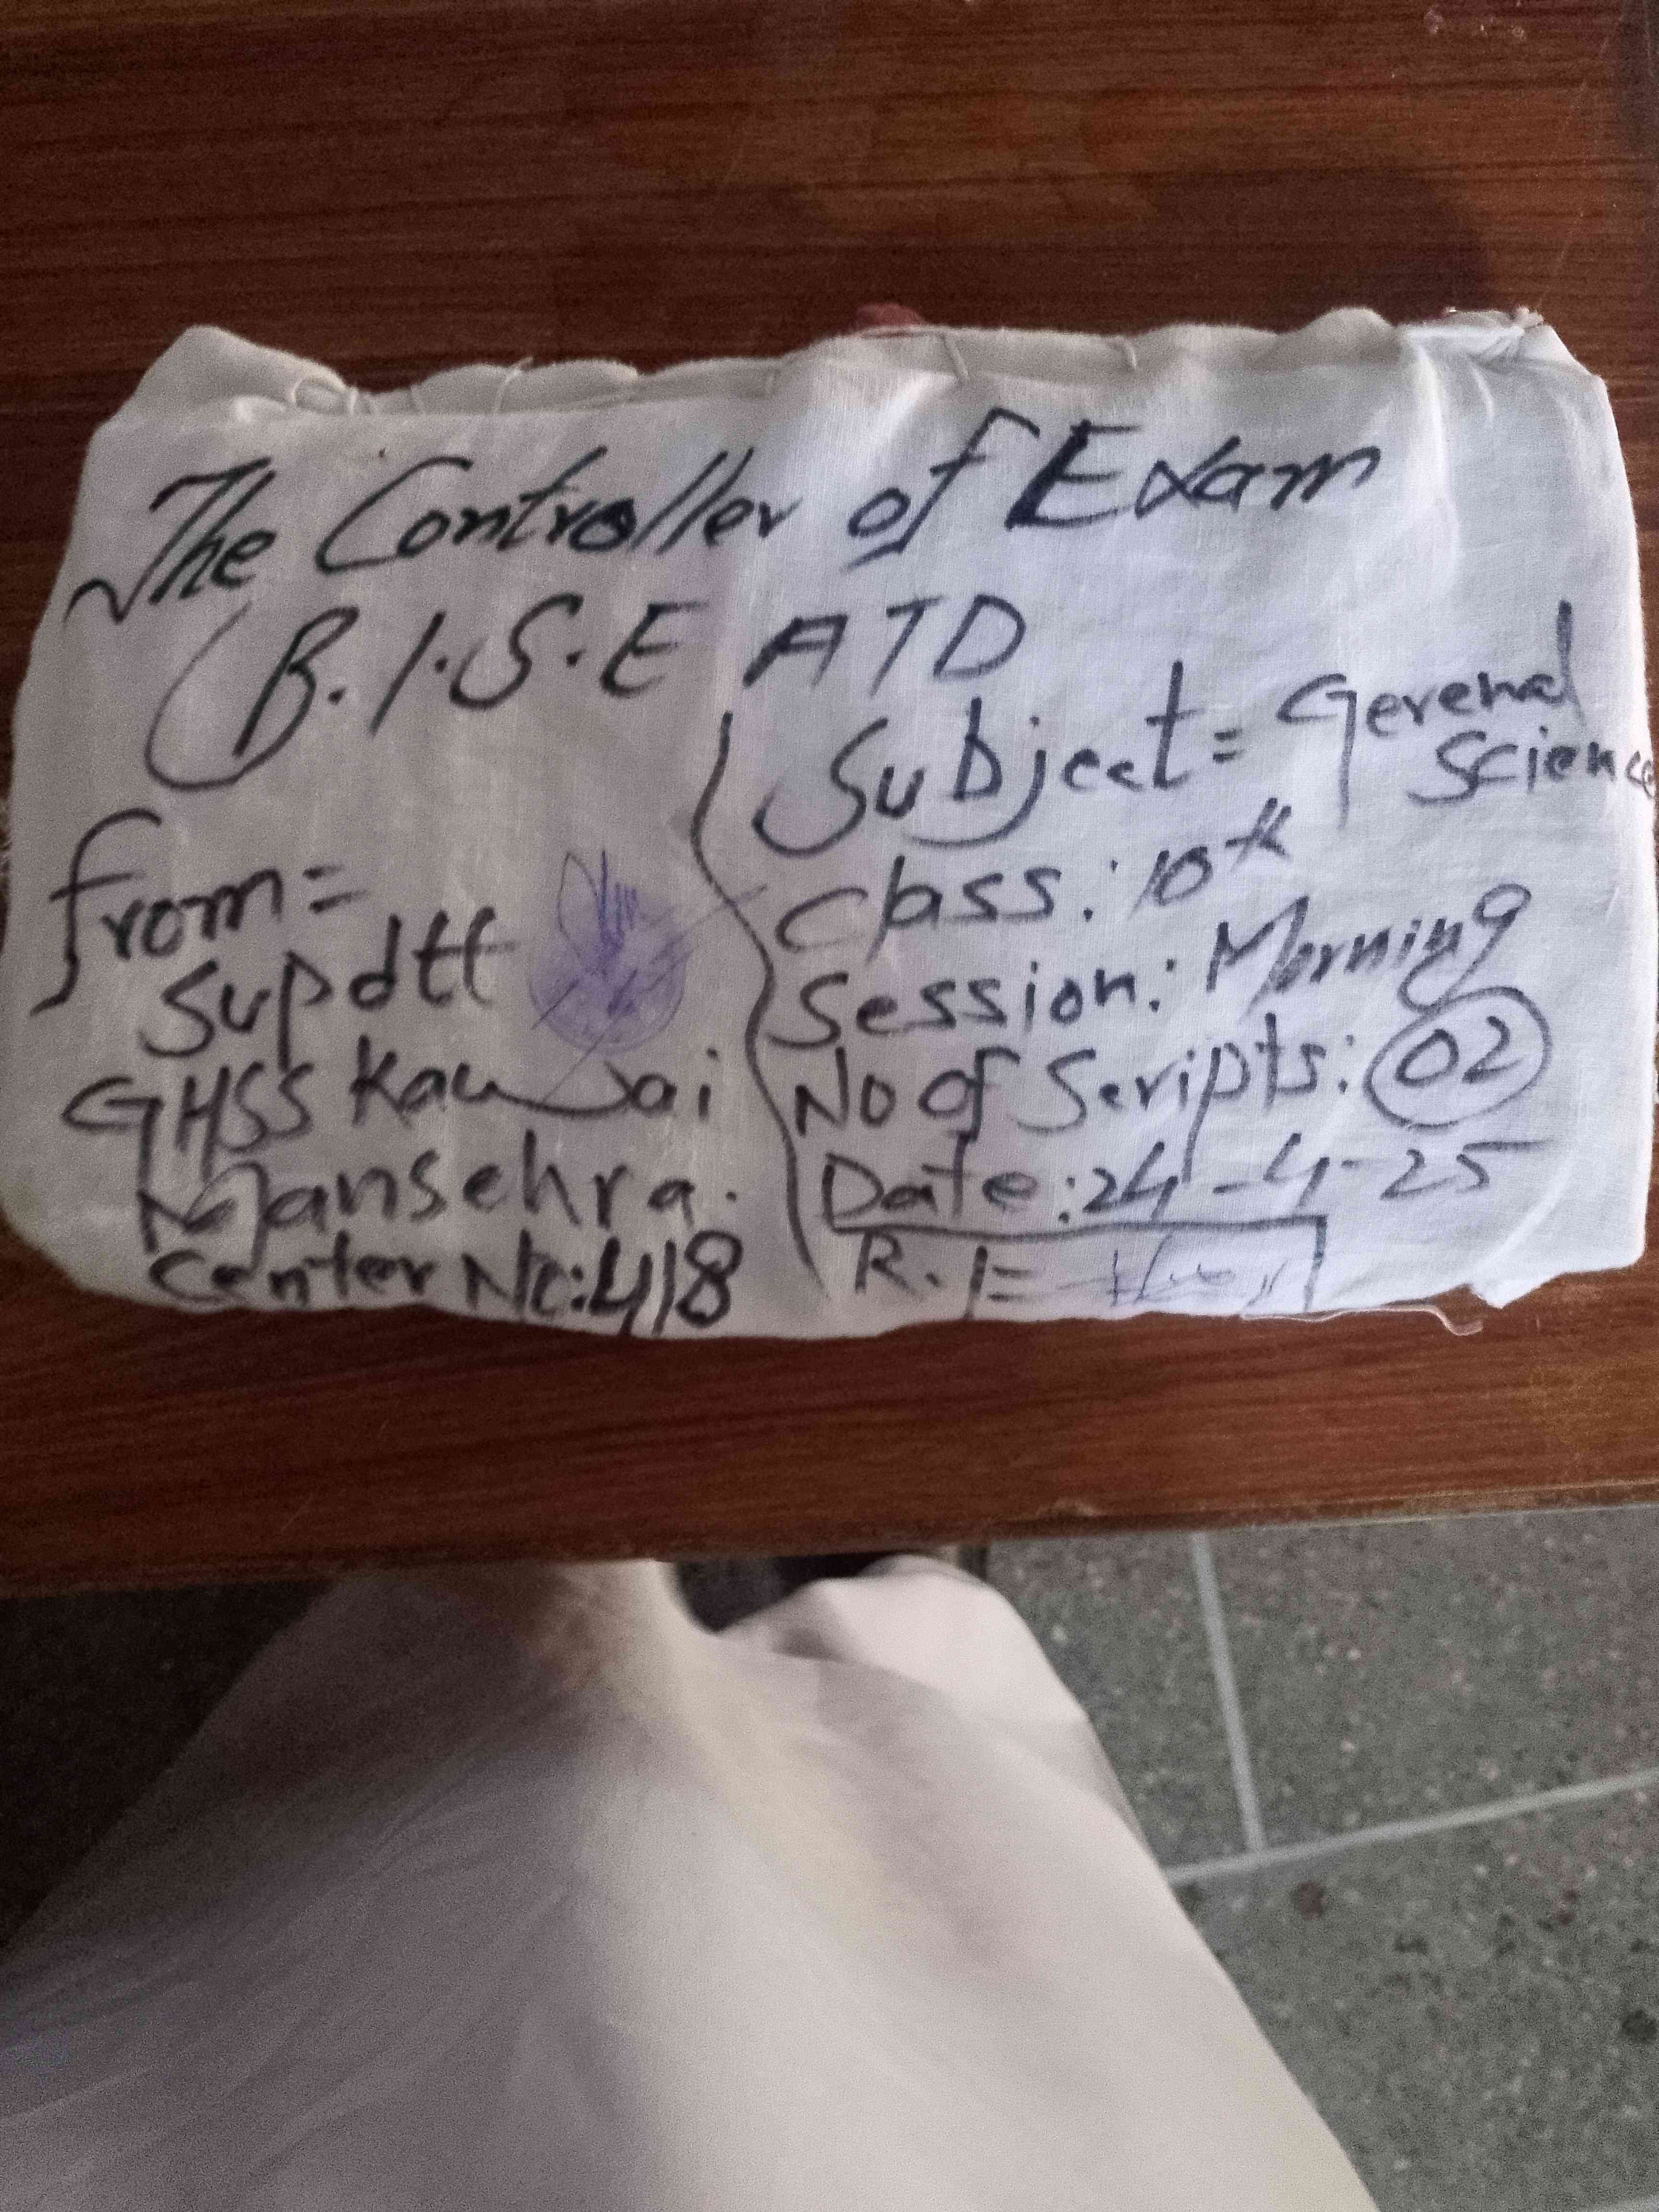 The Controller of Exam
B.I.S.E ATD
from=
Supdtt
GHSS Kawai
Mansehra.
Center No:418
Subject= Gerenal
Science
Class: 10th
Session: Morning
No of Scripts: 02
Date: 24-4-25
R.I=